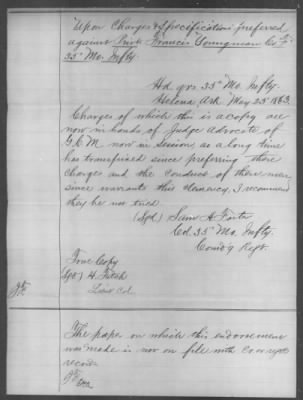 Upon Charges & Specifications preferred
against Privt Francis Youngman Co "F"
35" Mo. Infty.
Hd. qrs. 35" Mo. Infty.
Helena, Ark May 25" 1863.
Charges of which this is a copy are
now in hands of Judge Advocate of
G.C.M. now in Session, as a long time
has transpired since preferring these
Charges and the conduct of these men
since warrants this clemency, I recommend
they be not tried
(Sgd) Saml A Foster
Col. 35" Mo. Infty.
Comdg Regt.
True Copy
Sgd) H. Fitch
Lieut Col
The paper on which this endorsement
was made is now on file with Co. or regtl
records